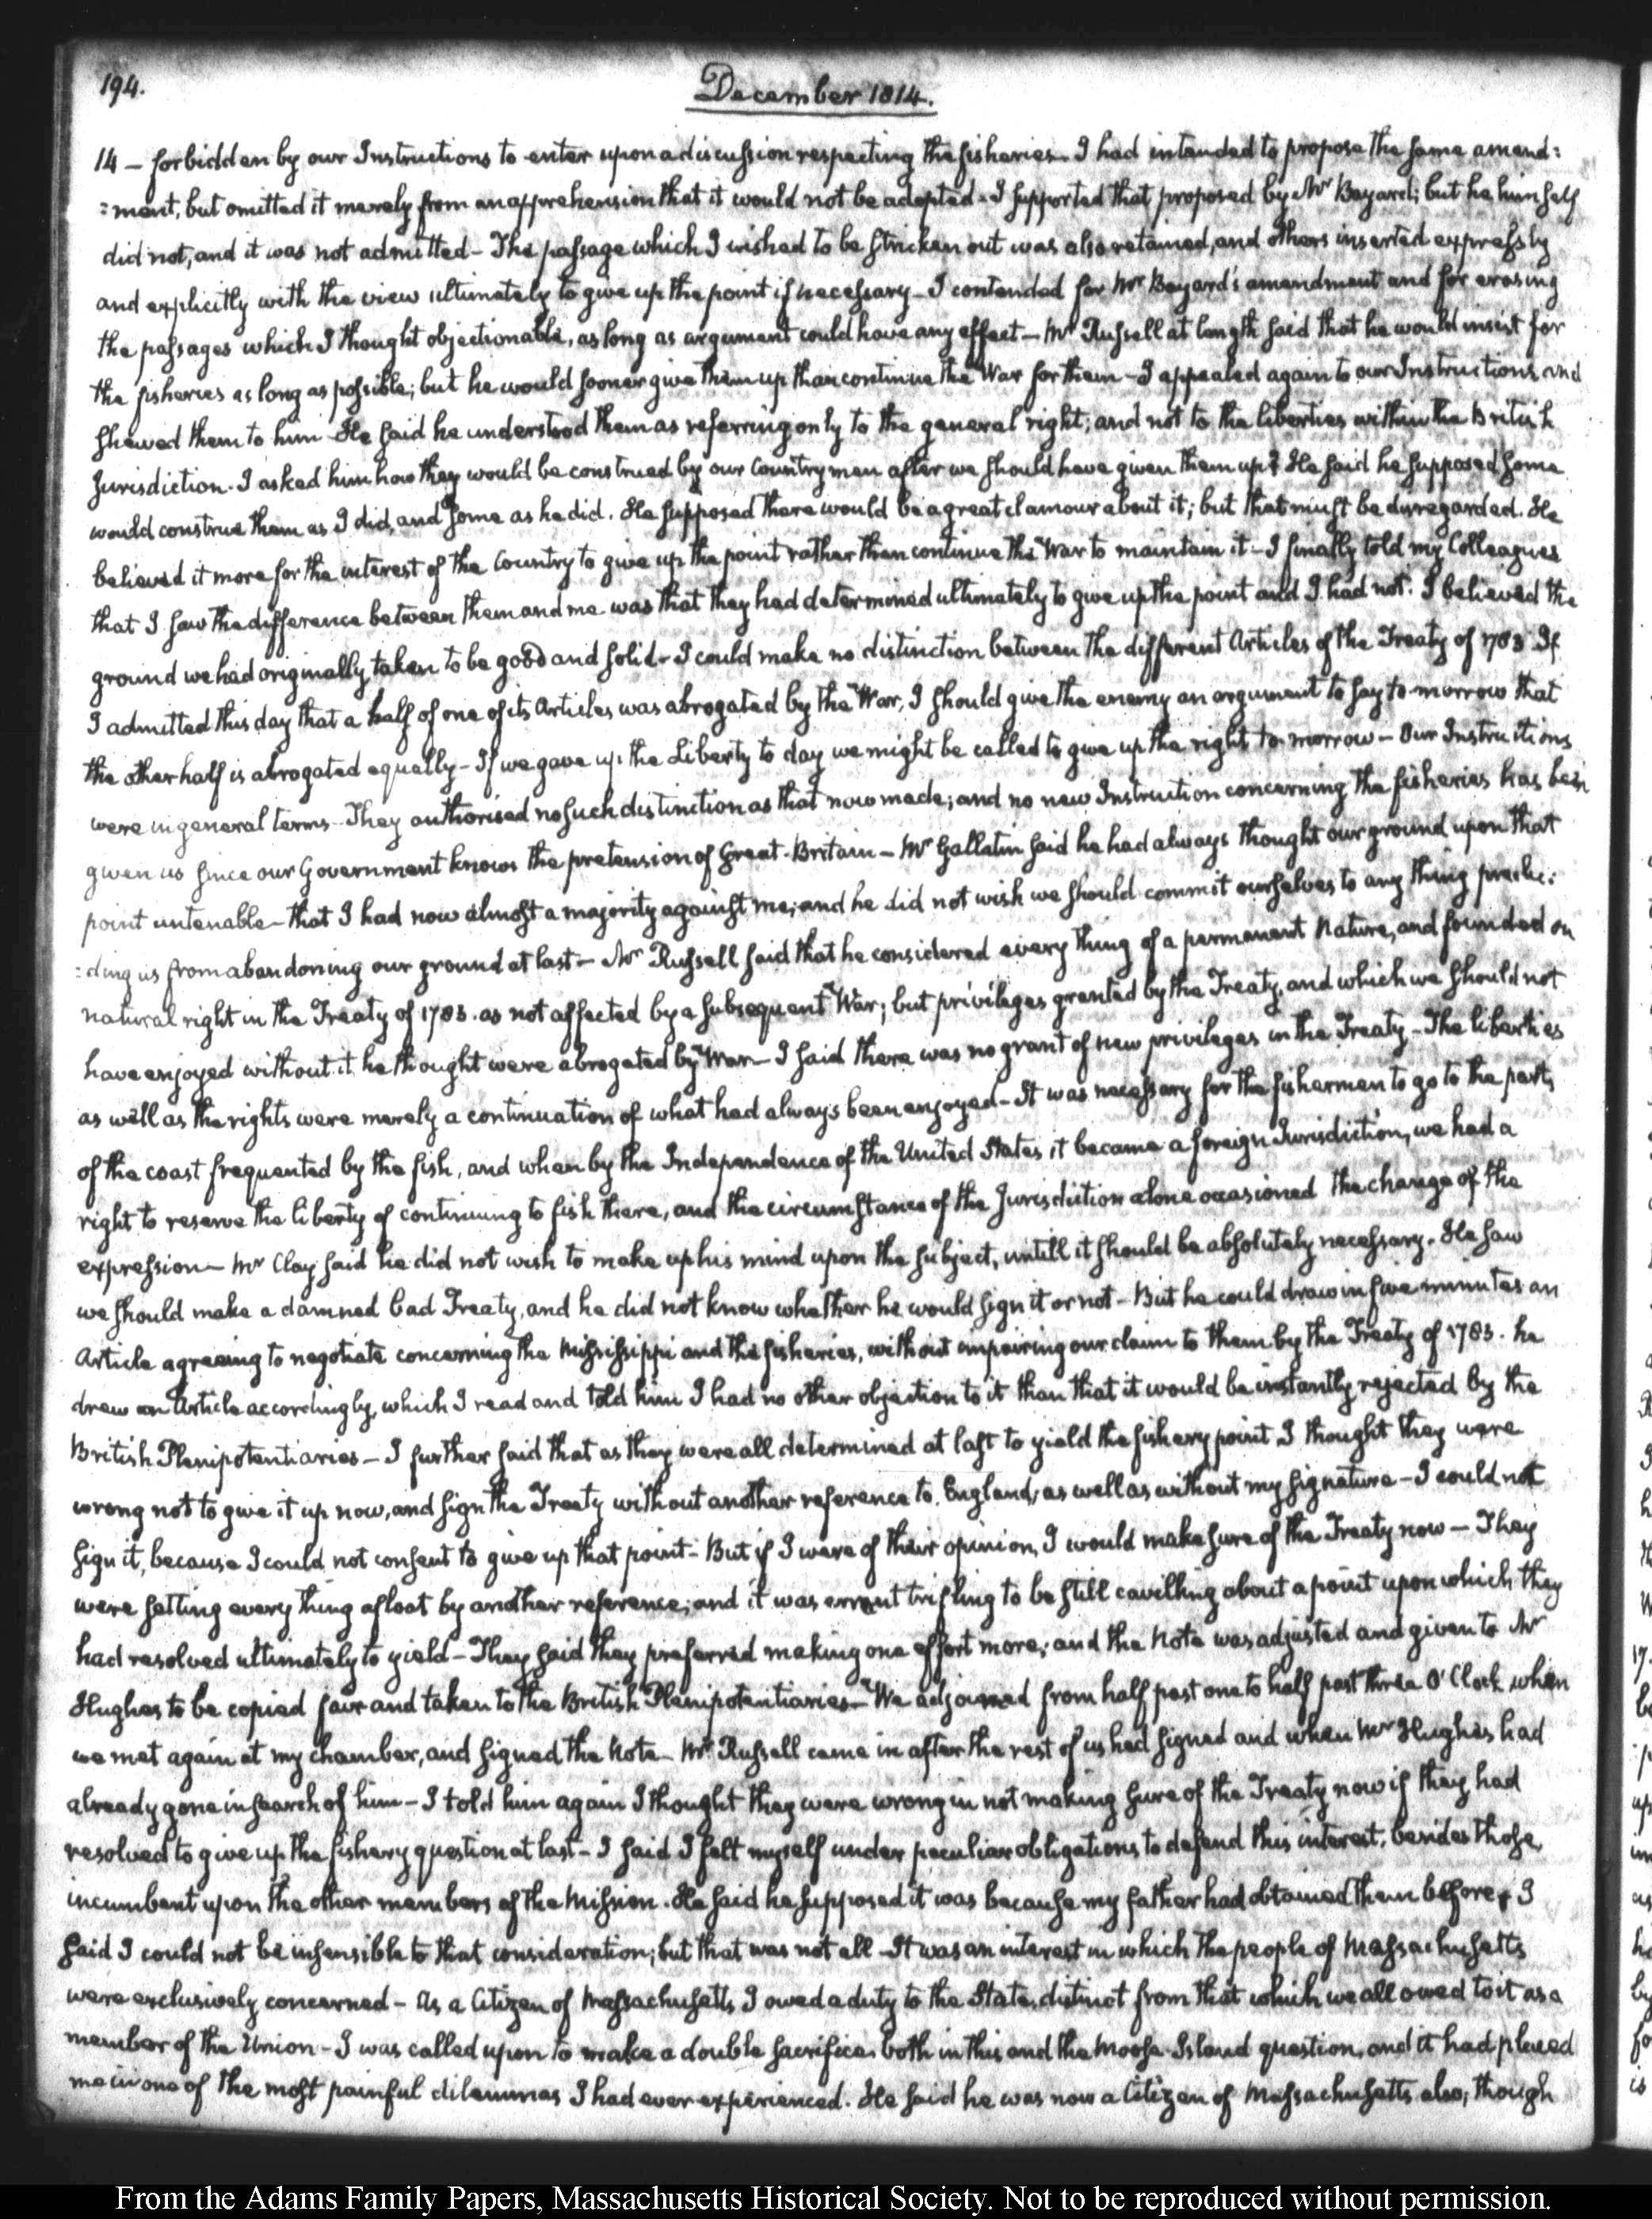 194.
December 1814.
14 – forbidden by our Instructions to enter upon a discussion respecting the fisheries – I had intended to propose the same amend:
:ment, but omitted it merely from an apprehension that it would not be adopted – I supported that proposed by Mr Bayard; but he himself
did not, and it was not admitted – The passage which I wished to be stricken out was also retained, and others inserted expressly
and explicitly with the view ultimately to give up the point if necessary – I contended for Mr Bayard's amendment and for erasing
the passages which I thought objectionable, as long as argument could have any effect – Mr Russell at length said that he would insist for
the fisheries as long as possible; but he would sooner give them up than continue the War for them – I appealed again to our Instructions and
shewed them to him – He said he understood them as referring only to the general right; and not to the liberties within the British
Jurisdiction. I asked him how they would be construed by our Countrymen after we should have given them up? He said he supposed some
would construe them as I did, and some as he did. He supposed there would be a great clamour about it; but that must be disregarded. He
believed it more for the interest of the Country to give up the point rather than continue the War to maintain it – I finally told my Colleagues
that I saw the difference between them and me was that they had determined ultimately to give up the point and I had not. I believed the
ground we had originally taken to be good and solid – I could make no distinction between the different Articles of the Treaty of 1783. If
I admitted this day that a half of one of its Articles was abrogated by the War, I should give the enemy an argument to say to-morrow that
the other half is abrogated equally – If we gave up the Liberty to day we might be called to give up the right to-morrow – Our Instructions
were in general terms – They authorised no such distinction as that now made; and no new Instruction concerning the fisheries has been
given us since our Government knows the pretension of Great-Britain – Mr Gallatin said he had always thought our ground upon that
point untenable – that I had now almost a majority against me; and he did not wish we should commit ourselves to any thing preclu:
:ding us from abandoning our ground at last – Mr Russell said that he considered every thing of a permanent Nature, and founded on
natural right in the Treaty of 1783. as not affected by a subsequent War; but privileges granted by the Treaty, and which we should not
have enjoyed without it he thought were abrogated by War – I said there was no grant of new privileges in the Treaty – The liberties
as well as the rights were merely a continuation of what had always been enjoyed – It was necessary for the fishermen to go to the parts
of the coast frequented by the fish, and when by the Independence of the United States it became a foreign Jurisdiction, we had a
right to reserve the liberty of continuing to fish there, and the circumstance of the Jurisdiction alone occasioned the change of the
expression – Mr Clay said he did not wish to make up his mind upon the subject, untill it should be absolutely necessary. He saw
we should make a damned bad Treaty, and he did not know whether he would sign it or not – But he could draw in five minutes an
Article agreeing to negotiate concerning the Mississippi and the fisheries, without impairing our claim to them by the Treaty of 1783. he
drew an Article accordingly, which I read and told him I had no other objection to it than that it would be instantly rejected by the
British Plenipotentiaries – I further said that as they were all determined at last to yield the fishery point I thought they were
wrong not to give it up now, and sign the Treaty without another reference to England, as well as without my signature – I could not
sign it, because I could not consent to give up that point – But if I were of their opinion, I would make sure of the Treaty now – They
were setting every thing afloat by another reference; and it was errant trifling to be still cavilling about a point upon which they
had resolved ultimately to yield – They said they preferred making one effort more; and the Note was adjusted and given to Mr
Hughes to be copied fair and taken to the British Plenipotentiaries – We adjourned from half past one to half past three O'Clock when
we met again at my chamber, and signed the Note – Mr Russell came in after the rest of us had signed and when Mr Hughes had
already gone in search of him – I told him again I thought they were wrong in not making sure of the Treaty now if they had
resolved to give up the fishery question at last – I said I felt myself under peculiar obligations to defend this interest, besides those
incumbent upon the other members of the Mission. He said he supposed it was because my father had obtained them before – I
said I could not be insensible to that consideration; but that was not all – It was an interest in which the people of Massachusetts
were exclusively concerned – As a Citizen of Massachusetts I owed a duty to the State, distinct from that which we all owed to it as a
member of the Union – I was called upon to make a double sacrifice, both in this and the Moose-Island question, and it had placed
me in one of the most painful dilemmas I had ever experienced. He said he was now a Citizen of Massachusetts also; though
From the Adams Family Papers, Massachusetts Historical Society. Not to be reproduced without permission.